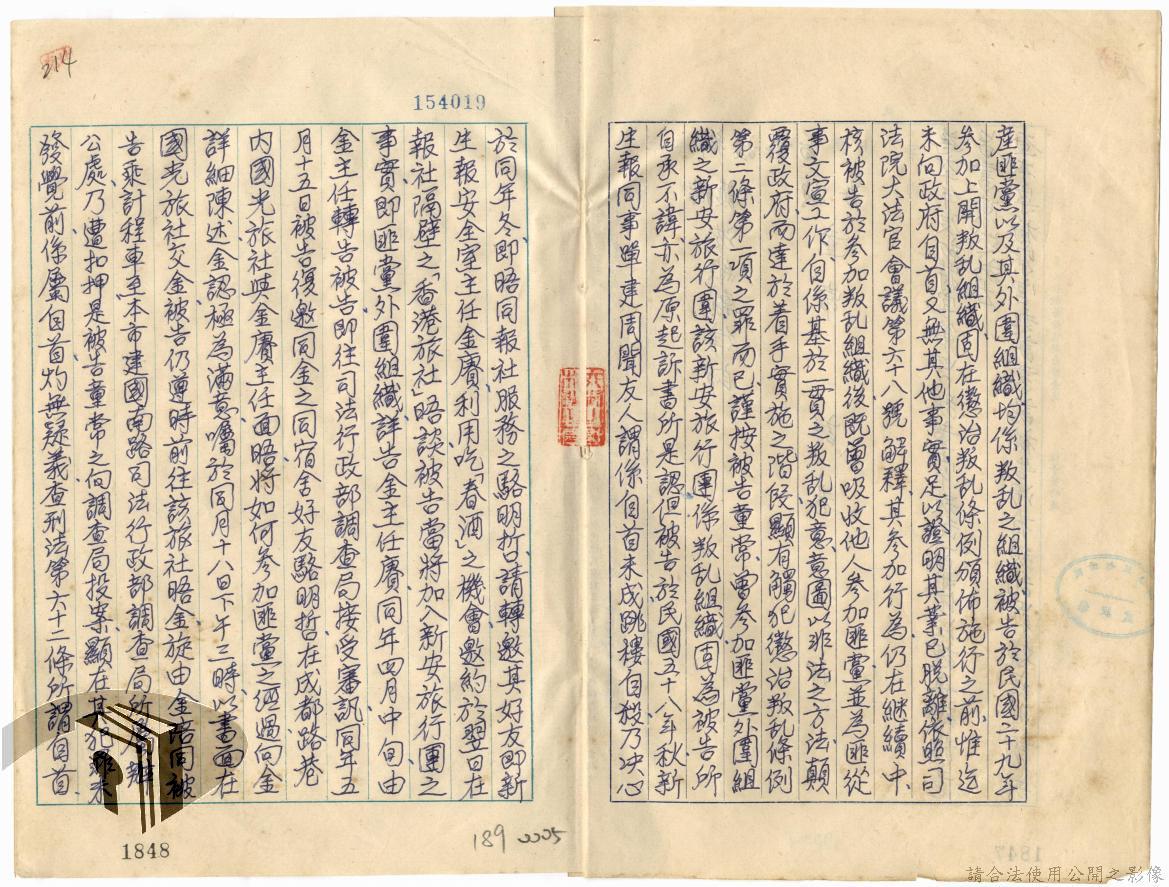 產匪黨以及其外圍組織均係叛乱之組織被告於民國二十九年
参加上開叛乱組織固在懲治叛乱條例頒佈施行之前惟迄
未向政府自首又無其他事實足以證明其業已脱離依照司
法院大法官會議第六十八號解釋其参加行為仍在継續中
核被告於参加叛乱組織後既曾吸收他人参加匪黨並為匪從
事文宣工作自係基於一貫之叛乱犯意意圖以非法之方法顛
覆政府而達於着手實施之階段顯有觸犯懲治叛乱條例
第二條第一項之罪而已謹按被告童常曾参加匪黨外圍組
織之新安旅行團該新安旅行團係叛乱組織固為被告所
自承不諱亦為原起訴書所是認但被告於民國五十八年秋新
生報同事單建周聞友人謂係自首未成跳樓自殺乃决心
154019
214
於同年冬即晤同報社服務之駱明哲請轉邀其好友即新
生報安全室主任金賡利用吃「春酒」之機會邀約於翌日在
報社隔壁之「香港旅社」晤談被告當將加入新安旅行團之
事實即匪黨外圍組織詳告金主任賡同年四月中旬由
金主任轉告被告即往司法行政部調查局接受審訊同年五
月十五日被告復邀同金之同宿舍好友駱明哲在成都路巷
内國光旅社與金賡主任面晤將如何参加匪黨之經過向金
詳細陳述金認極為滿意囑於同月十八日下午三時以書面在
國光旅社交金被告仍遵時前往該旅社晤金旋由金陪同被
告乘計程車至本市建國南路司法行政部調查局所屬辦
公處乃遭扣押是被告童常之向調查局投案顯在其犯罪未
發覺前係屬自首灼無疑義查刑法第六十二條所謂自首
1848
189 0005
請合法使用公開之影像